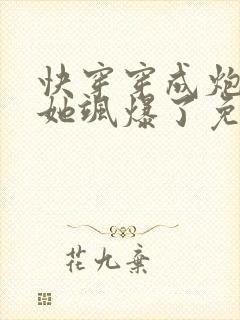 快穿穿成炮
她飒爆了免
花九棄